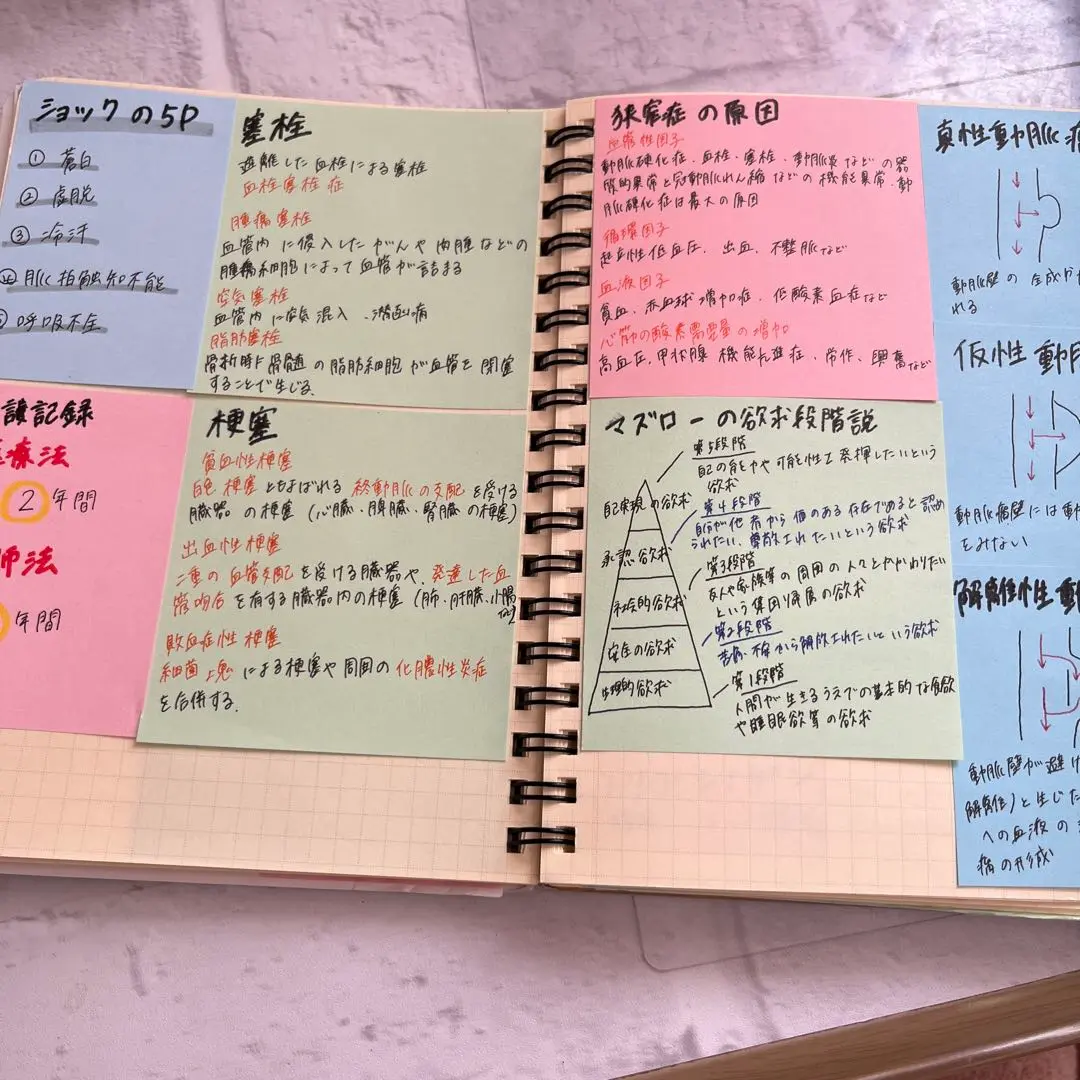 ショックの5P
① 蒼白
② 虚脱
③ 冷汗
④ 脈拍触知不能
⑤ 呼吸不全
塞栓
遊離した血栓による塞栓
血栓塞栓症
腫瘍塞栓
血管内に侵入したがんや肉腫などの
腫瘍細胞によって血管が詰まる
空気塞栓
血管内に空気混入、潜函病
脂肪塞栓
骨折時に骨髄の脂肪細胞が血管を閉塞
することで生じる。
護記録
療法
2年間
師法
年間
梗塞
貧血性梗塞
白色梗塞ともよばれる 終動脈の支配を受ける
臓器の梗塞(心臓、脾臓、腎臓の梗塞)
出血性梗塞
二重の血管支配を受ける臓器や、発達した血
管吻合を有する臓器内の梗塞(肺、肝臓、小腸
など)
敗血症性梗塞
細菌塊による梗塞や周囲の化膿性炎症
を合併する。
狭窄症の原因
血管性因子
動脈硬化症、血栓、塞栓、動脈炎などの器
質的異常と冠動脈れん縮などの機能異常、動
脈硬化症は最大の原因
循環因子
起立性低血圧、出血、不整脈など
血液因子
貧血、赤血球増加症、低酸素血症など
心筋の酸素需要量の増加
高血圧、甲状腺機能亢進症、労作、興奮など
マズローの欲求段階説
第5段階
自己の能力や可能性を発揮したいという
欲求
自己実現の欲求
第4段階
自分が他者から価値のある存在であると認め
られたい、尊敬されたいという欲求
承認欲求
第3段階
友人や家族等の周囲の人々とかかわりたい
という集団帰属の欲求
社会的欲求
第2段階
苦痛、不安から解放されたいという欲求
安全の欲求
第1段階
人間が生きるうえでの基本的な食欲
や睡眠欲等の欲求
生理的欲求
真性動脈
動脈壁の全成分が
れる
仮性動
動脈瘤壁には動
をみない
解離性動
動脈壁が避け
解離)と生じた
への血液の
瘤の形成